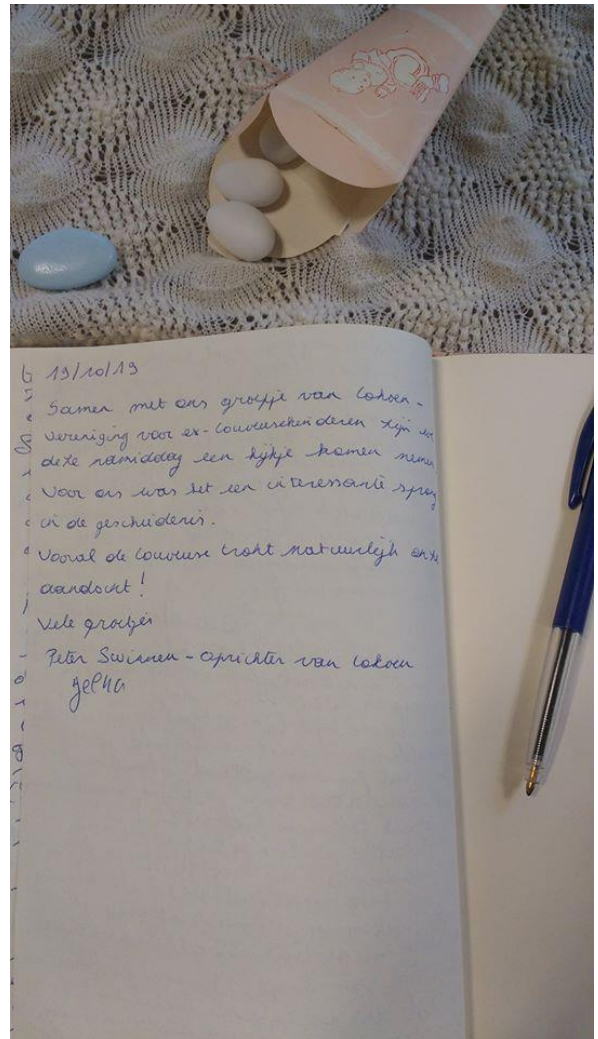 19/10/19
Samen met ons groepje van Cokoen -
vereniging voor ex-couveusekinderen zijn we
deze namiddag een kijkje komen nemen
Voor ons was het een interessante sprong
in de geschiedenis.
Vooral de couveuse trokt natuurlijk onze
aandacht!
Vele groetjes
Peter Swinnen - oprichter van Cokoen